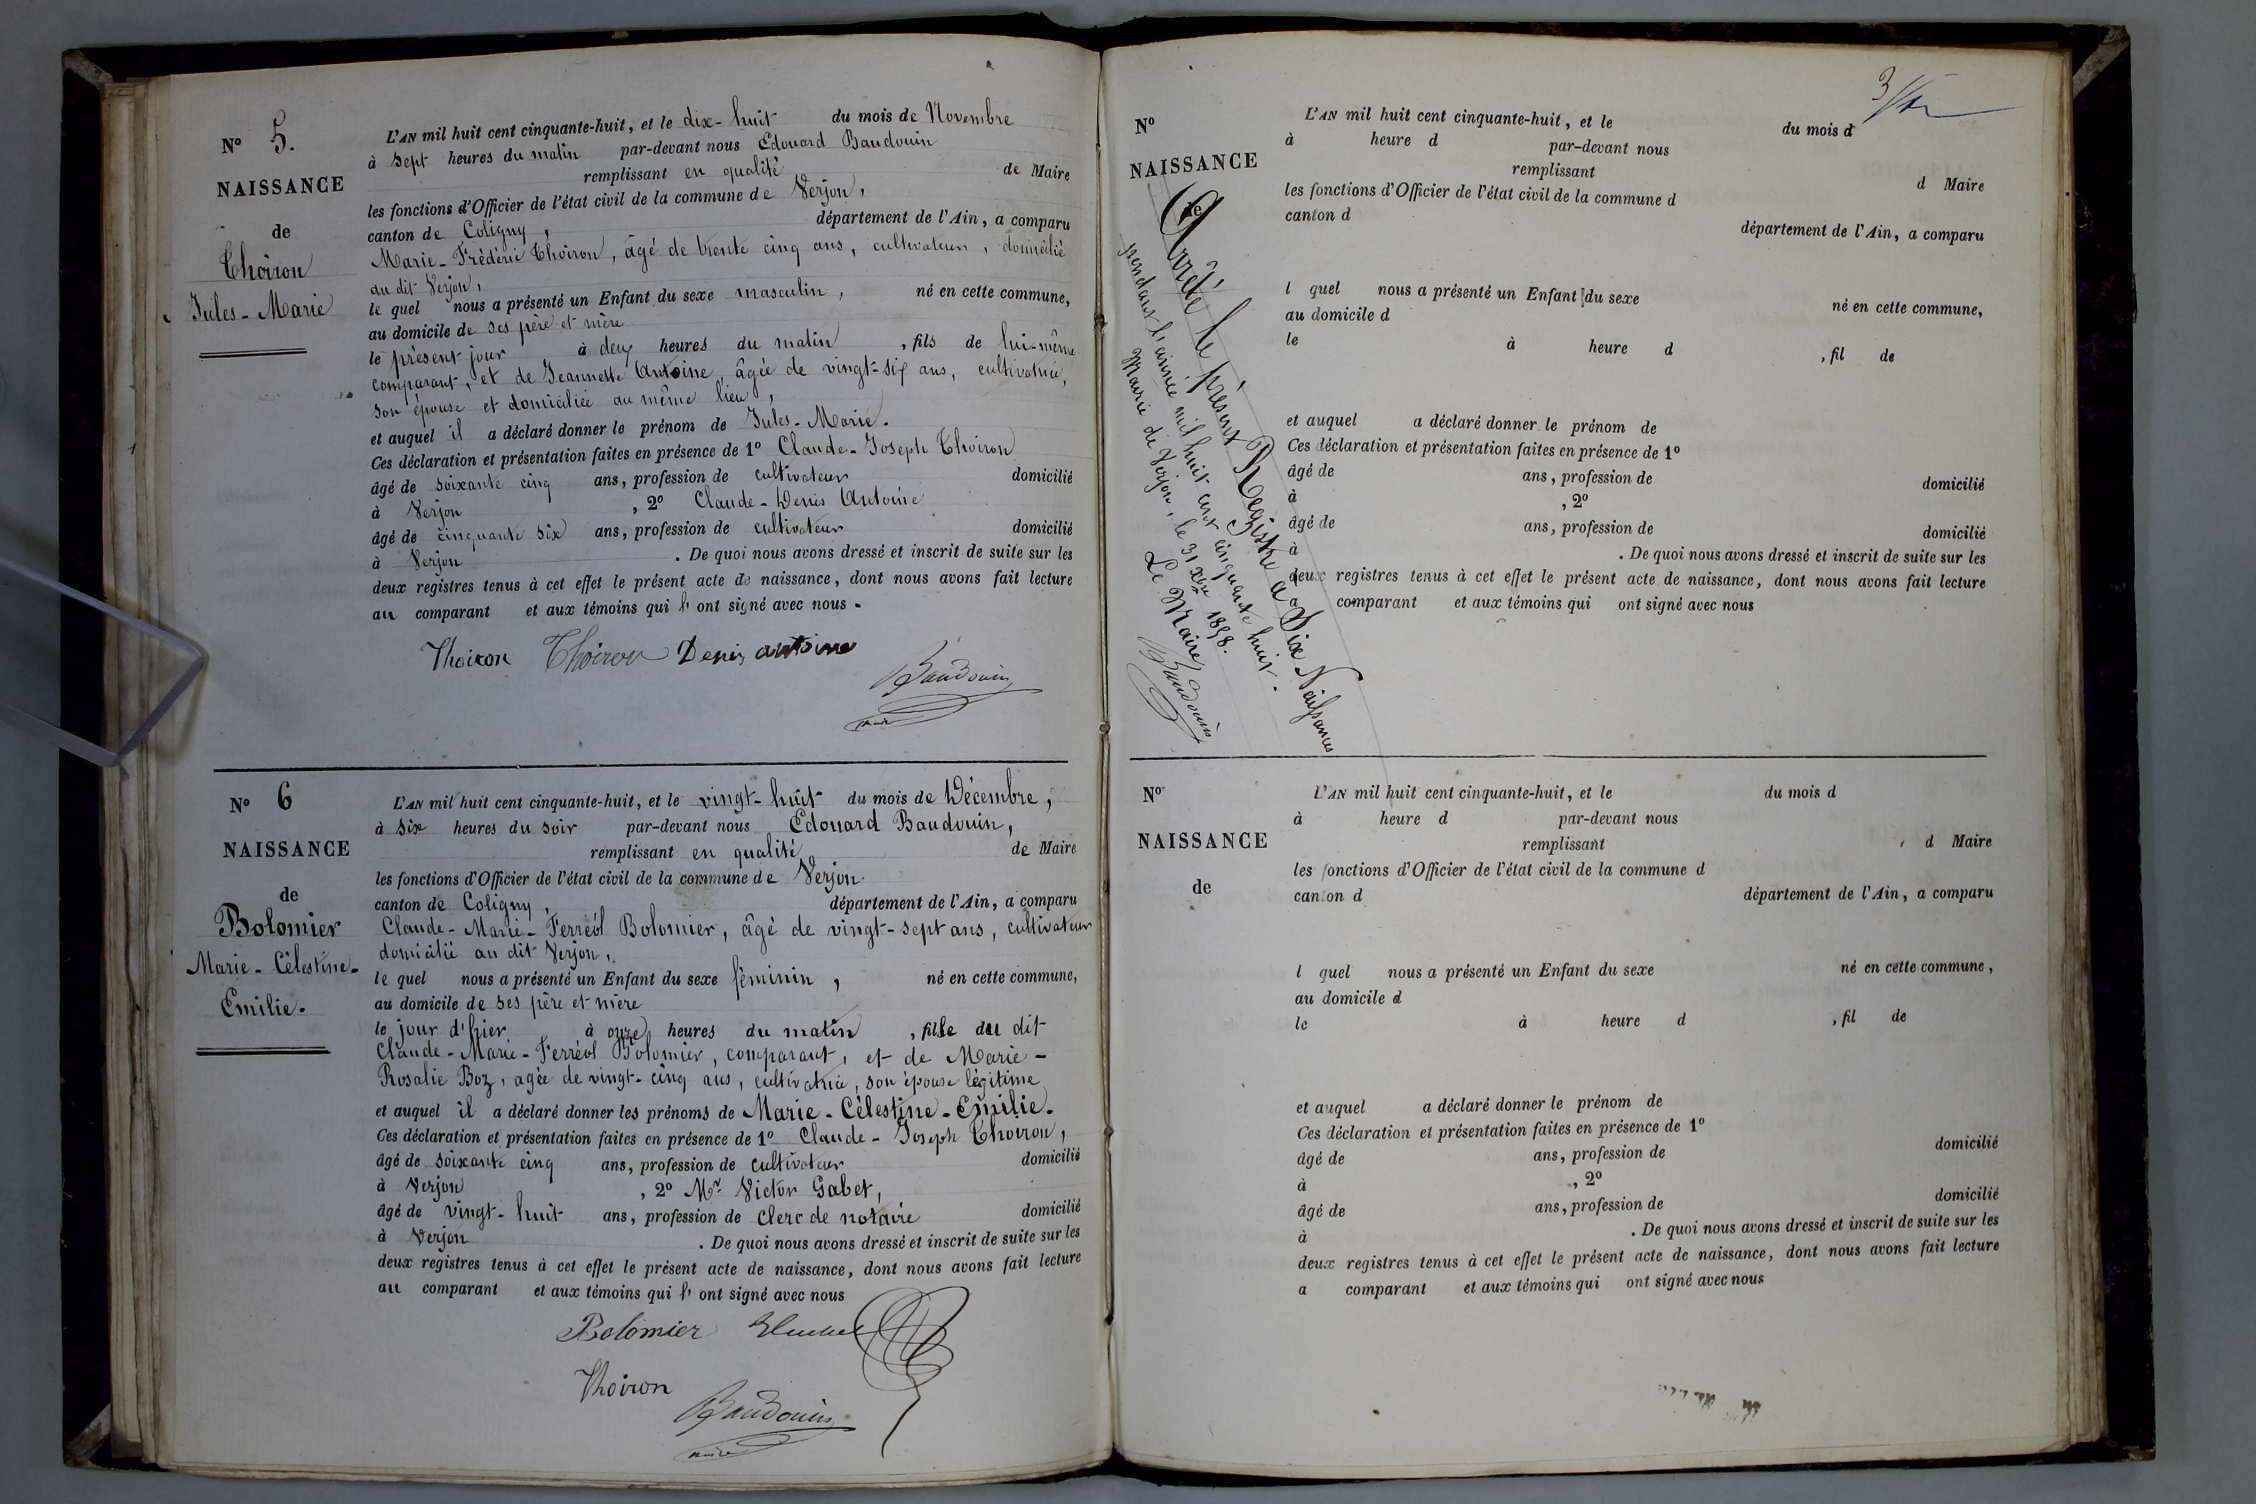 N° 5.
NAISSANCE
de
Thoiron
Jules-Marie
L'AN mil huit cent cinquante-huit, et le dix-huit du mois de Novembre
à sept heures du matin par-devant nous Edouard Baudouin
remplissant en qualité de Maire
les fonctions d'Officier de l'état civil de la commune de Verjon,
canton de Coligny, département de l'Ain, a comparu
Marie-Frédéric Thoiron, âgé de trente cinq ans, cultivateur, domicilié
au dit Verjon,
le quel nous a présenté un Enfant du sexe masculin, né en cette commune,
au domicile de ses père et mère
le présent jour à deux heures du matin, fils de lui-même
comparant, et de Jeannette Antoine, âgée de vingt-six ans, cultivatrice,
son épouse et domiciliée au même lieu,
et auquel il a déclaré donner le prénom de Jules-Marie.
Ces déclaration et présentation faites en présence de 1° Claude-Joseph Thoiron
âgé de soixante cinq ans, profession de cultivateur domicilié
à Verjon, 2° Claude-Denis Antoine
âgé de cinquante six ans, profession de cultivateur domicilié
à Verjon. De quoi nous avons dressé et inscrit de suite sur les
deux registres tenus à cet effet le présent acte de naissance, dont nous avons fait lecture
au comparant et aux témoins qui l'ont signé avec nous.
Thoiron Thoiron Denis antoine
Baudouin
N° 6
NAISSANCE
de
Bolomier
Marie-Célestine-
Emilie.
L'AN mil huit cent cinquante-huit, et le vingt-huit du mois de Décembre,
à six heures du soir par-devant nous Edouard Baudouin,
remplissant en qualité de Maire
les fonctions d'Officier de l'état civil de la commune de Verjon
canton de Coligny, département de l'Ain, a comparu
Claude-Marie-Ferréol Bolomier, âgé de vingt-sept ans, cultivateur
domicilié au dit Verjon,
le quel nous a présenté un Enfant du sexe féminin, né en cette commune,
au domicile de ses père et mère
le jour d'hier à onze heures du matin, fille du dit
Claude-Marie-Ferréol Bolomier, comparant, et de Marie-
Rosalie Boz, agée de vingt-cinq ans, cultivatrice, son épouse légitime
et auquel il a déclaré donner les prénoms de Marie-Célestine-Emilie.
Ces déclaration et présentation faites en présence de 1° Claude-Joseph Thoiron,
âgé de soixante cinq ans, profession de cultivateur domicilié
à Verjon, 2° Mr Victor Gabet,
âgé de vingt-huit ans, profession de clerc de notaire domicilié
à Verjon. De quoi nous avons dressé et inscrit de suite sur les
deux registres tenus à cet effet le présent acte de naissance, dont nous avons fait lecture
au comparant et aux témoins qui l'ont signé avec nous
Bolomier
Thoiron
Baudouin
maire
N°
NAISSANCE
de
Arrêté le présent Registre à Six Naissances
pendant l'année mil huit cent cinquante huit.
Mairie de Verjon, le 31 Xbre 1858.
Le Maire
Baudouin
L'AN mil huit cent cinquante-huit, et le du mois d
à heure d par-devant nous
remplissant d Maire
les fonctions d'Officier de l'état civil de la commune d
canton d département de l'Ain, a comparu
l quel nous a présenté un Enfant du sexe né en cette commune,
au domicile d
le à heure d, fil de
et auquel a déclaré donner le prénom de
Ces déclaration et présentation faites en présence de 1°
âgé de ans, profession de domicilié
à, 2°
âgé de ans, profession de domicilié
à. De quoi nous avons dressé et inscrit de suite sur les
deux registres tenus à cet effet le présent acte de naissance, dont nous avons fait lecture
comparant et aux témoins qui ont signé avec nous
N°
NAISSANCE
de
L'AN mil huit cent cinquante-huit, et le du mois d
à heure d par-devant nous
remplissant d Maire
les fonctions d'Officier de l'état civil de la commune d
canton d département de l'Ain, a comparu
l quel nous a présenté un Enfant du sexe né en cette commune,
au domicile d
le à heure d, fil de
et auquel a déclaré donner le prénom de
Ces déclaration et présentation faites en présence de 1°
âgé de ans, profession de domicilié
à, 2°
âgé de ans, profession de domicilié
à. De quoi nous avons dressé et inscrit de suite sur les
deux registres tenus à cet effet le présent acte de naissance, dont nous avons fait lecture
a comparant et aux témoins qui ont signé avec nous